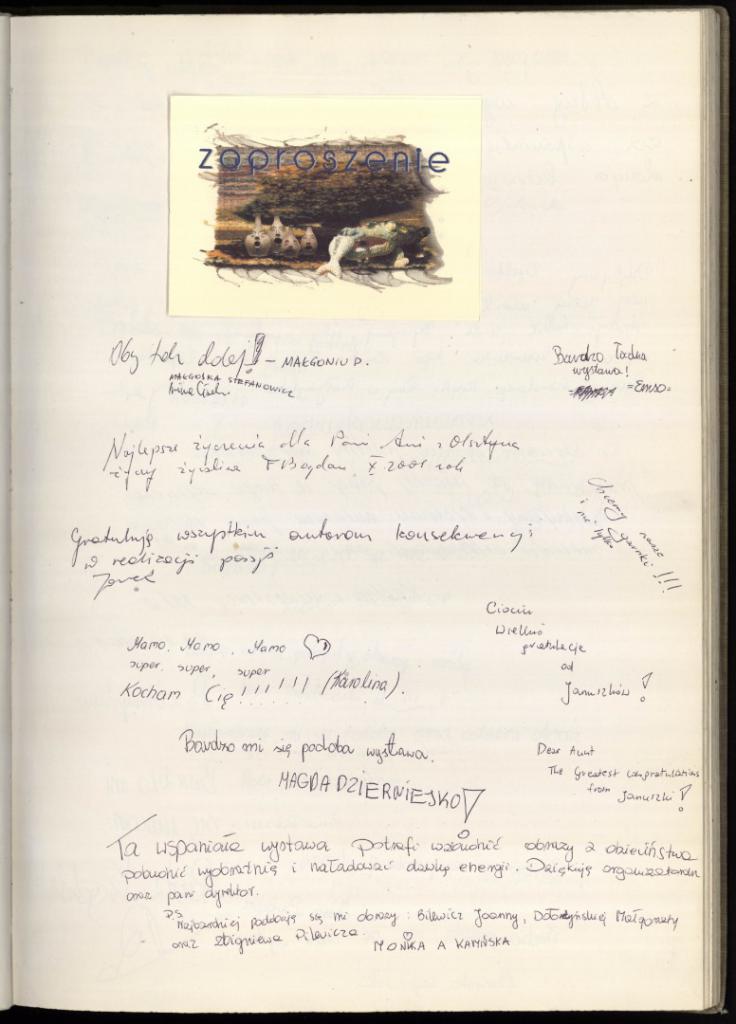 zaproszenie
Oby tak dalej! – MAŁGONIU P.
MAŁGOŚKA STEFANOWICZ
Bardzo ładna
wystawa!
=Emso=
Najlepsze życzenia dla Pani Ani z Olsztyna
życzy życzliwa T Bogdan X 2001 rok
Chcemy nasze
i nie tylko
!!!
Gratuluję wszystkim autorom konsekwencji
w realizacji pasji
Jarek
Ciociu
Wielkie
gratulacje
od
Januszków!
Mamo, Mamo, Mamo
super, super, super
Kocham Cię!!!!!! (Karolina).
Bardzo mi się podoba wystawa.
MAGDA DZIERNIEJKO!
Dear Aunt
The Greatest congratulations
from Januszki!
Ta wspaniała wystawa potrafi wzbudzić obrazy z dzieciństwa
pobudzić wyobraźnię i naładować dawkę energii. Dziękuję organizatorom
oraz pani dyrektor.
P.S.
Najbardziej podobają się mi obrazy: Bilewicz Joanny, Małgorzaty
oraz Zbigniewa Pilewicza.
MONIKA A KAMIŃSKA